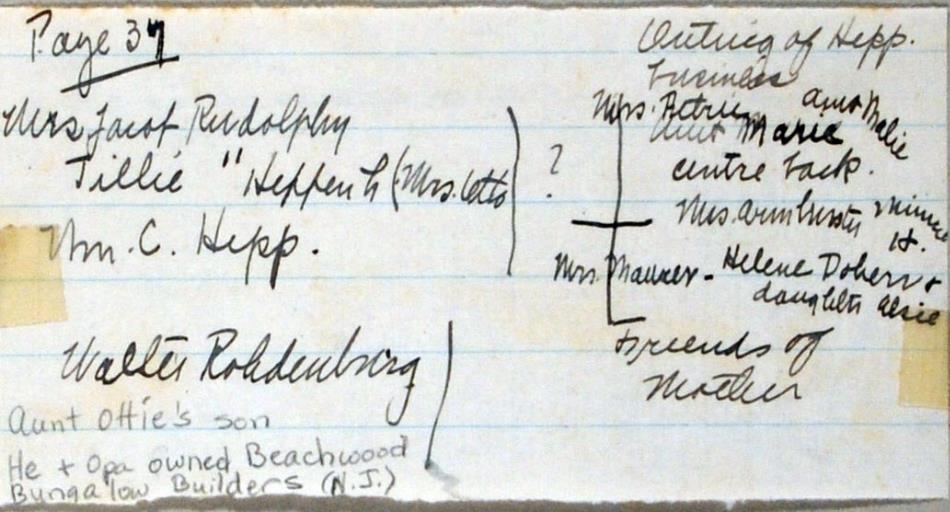 Page 37
Mrs Jacob Rudolphy
Tillie " Heppen H (Mrs. Otto
Wm. C. Hepp.
?
Walter Rohdenburg
Aunt Ottie's son
He + Opa owned Beachwood
Bungalow Builders (N.J.)
Outing of Hepp.
business
Mrs. Petrie Aunt Malie
Aunt Marie
centre back.
Mrs. Armbruster Minnie
H.
Mrs. Maurer - Helene Doherr +
daughter Elsie
Friends of
Mother